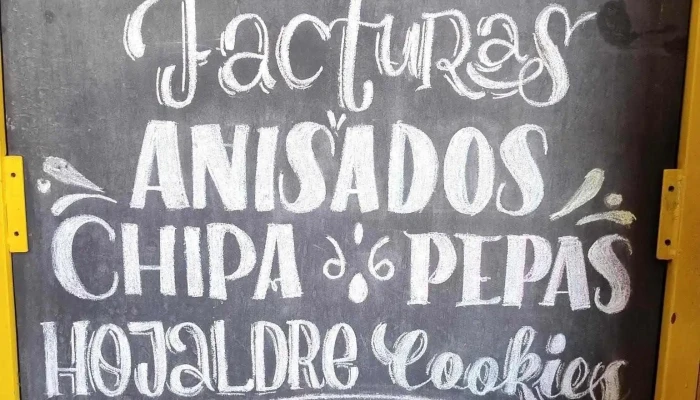 Facturas
ANISADOS
CHIPA PEPAS
HOJALDRE Cookies